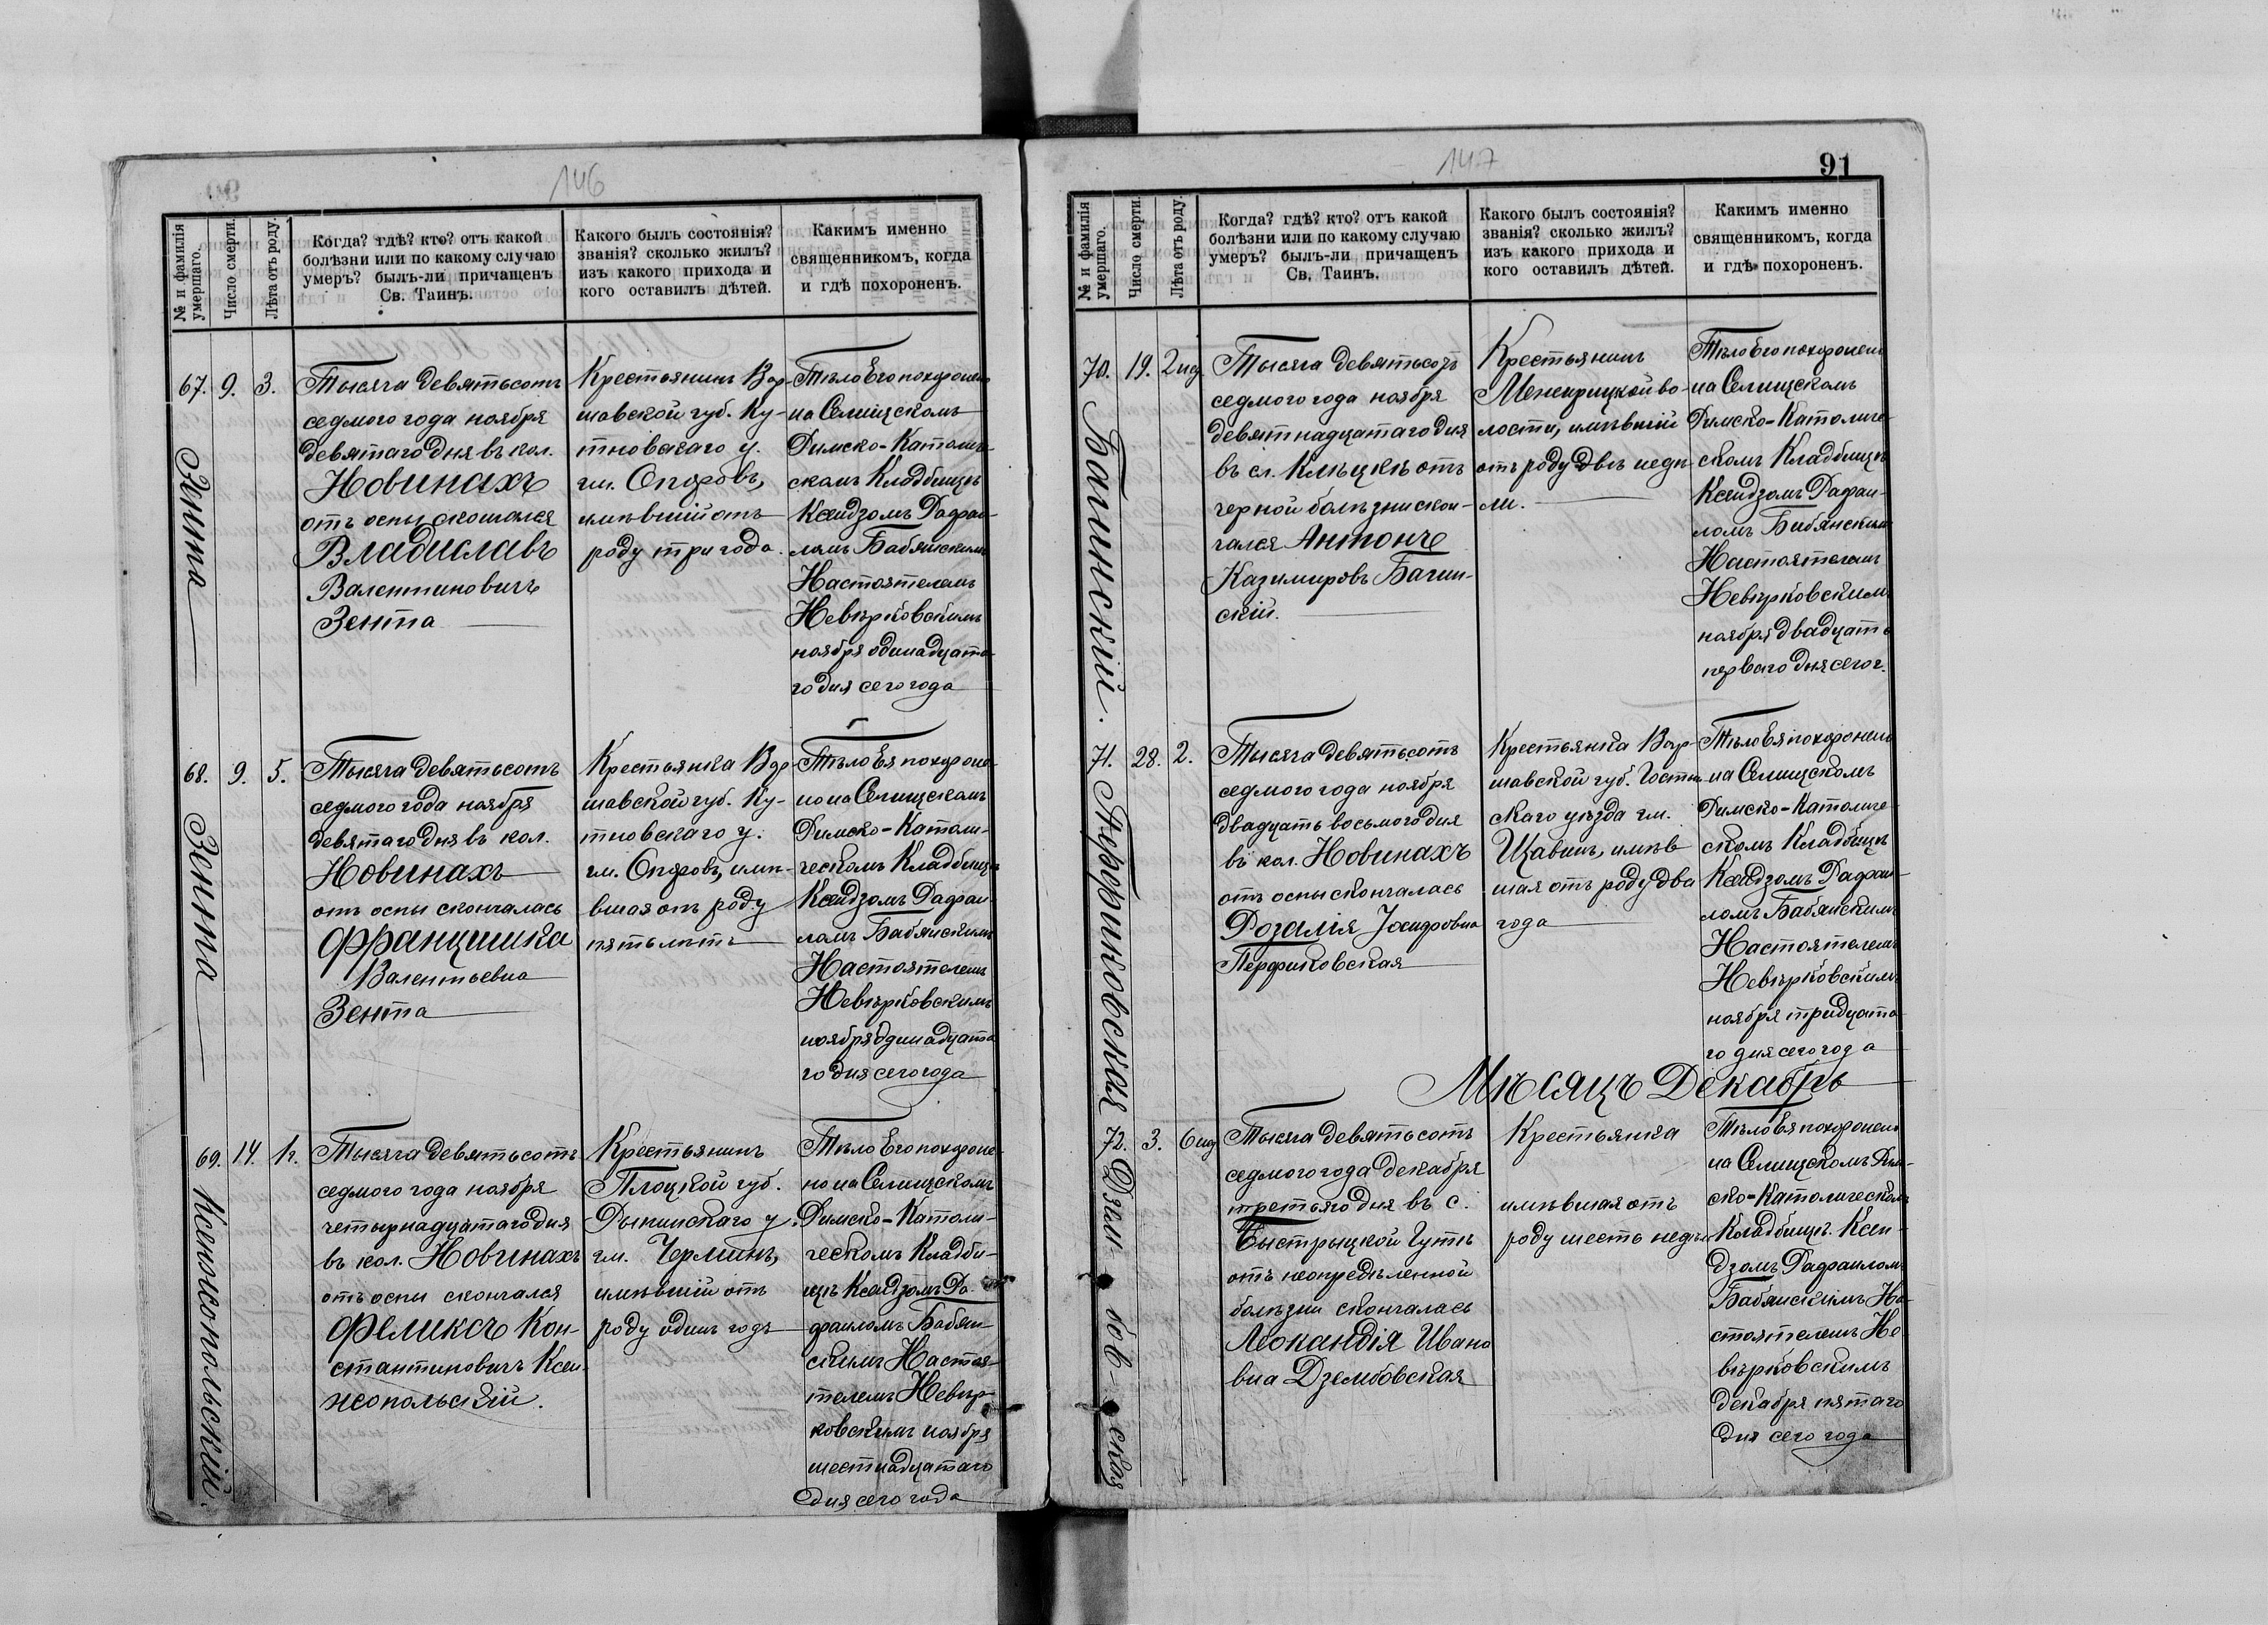 146
№ и фамилія умершаго.
Число смерти.
Лѣта отъ роду.
Когда? гдѣ? кто? отъ какой
болѣзни или по какому случаю
умеръ? былъ-ли причащенъ
Св. Таинъ.
Какого былъ состоянія?
званія? сколько жилъ?
изъ какого прихода и
кого оставилъ дѣтей.
Какимъ именно
священникомъ, когда
и гдѣ похороненъ.
67. 9. 3.
Зента
Тысяча девятьсотъ
седмого года ноября
девятаго дня въ кол.
Новинахъ
отъ оспы скончался
Владиславъ
Валентиновичъ
Зента
Крестьянинъ Вар-
шавской губ. Ку-
тновскаго у.
гм. Опоровъ,
имѣвшій отъ
роду три года.
Тѣло Его похоронено
на Селищскомъ
Римско-Католиче-
скомъ Кладбищѣ
Ксендзомъ Рафаи-
ломъ Бабянскимъ
Настоятелемъ
Невѣрковскимъ
ноября одинадцата-
го дня сего года
68. 9. 5.
Зента
Тысяча девятьсотъ
седмого года ноября
девятаго дня въ кол.
Новинахъ
отъ оспы скончалась
Францишка
Валентьевна
Зента
Крестьянка Вар-
шавской губ. Ку-
тновскаго у.
гм. Опоровъ, имѣ-
вшая отъ роду
пять лѣтъ
Тѣло Ея похороне-
но на Селищскомъ
Римско-Католи-
ческомъ Кладбищѣ
Ксендзомъ Рафаи-
ломъ Бабянскимъ
Настоятелемъ
Невѣрковскимъ
ноября одинадцата
го дня сего года
69. 14. 1г.
Ксенжопольскій.
Тысяча девятьсотъ
седмого года ноября
четырнадцатаго дня
въ кол. Новинахъ
отъ оспы скончался
Феликсъ Кон-
стантиновичъ Ксен-
жопольскій.
Крестьянинъ
Плоцкой губ.
Рыпинскаго у.
гм. Черминъ,
имѣвшій отъ
роду одинъ годъ
Тѣло Его похороне-
но на Селищскомъ
Римско-Католи-
ческомъ Кладби-
щѣ Ксендзомъ Ра-
фаиломъ Бабян-
скимъ Настоя-
телемъ Невѣр-
ковскимъ ноября
шестнадцатаго
дня сего года
147
91
№ и фамилія умершаго.
Число смерти.
Лѣта отъ роду.
Когда? гдѣ? кто? отъ какой
болѣзни или по какому случаю
умеръ? былъ-ли причащенъ
Св. Таинъ.
Какого былъ состоянія?
званія? сколько жилъ?
изъ какого прихода и
кого оставилъ дѣтей.
Какимъ именно
священникомъ, когда
и гдѣ похороненъ.
70. 19. 2 нед
Багинскій.
Тысяча девятьсотъ
седмого года ноября
девятнадцатаго дня
въ сл. Клѣцкѣ отъ
черной болѣзни скон-
чался Антонъ
Казимировъ Багин-
скій.
Крестьянинъ
Межирицкой во-
лости, имѣвшій
отъ роду двѣ недѣ-
ли.
Тѣло Его похоронено
на Селищскомъ
Римско-Католиче-
скомъ Кладбищѣ
Ксендзомъ Рафаи-
ломъ Бабянскимъ
Настоятелемъ
Невѣрковскимъ
ноября двадцать
перваго дня сего г.
71. 28. 2.
Перфиковская
Тысяча девятьсотъ
седмого года ноября
двадцать восьмого дня
въ кол. Новинахъ
отъ оспы скончалась
Розалія Іосифовна
Перфиковская
Крестьянка Вар-
шавской губ. Гостин-
скаго уѣзда гм.
Щавинъ, имѣв
шая отъ роду два
года
Тѣло Ея похоронено
на Селищскомъ
Римско-Католиче-
скомъ Кладбищѣ
Ксендзомъ Рафаи-
ломъ Бабянскимъ
Настоятелемъ
Невѣрковскимъ
ноября тридцата-
го дня сего года
Мѣсяцъ Декабрь
72. 3. 6 нед
Дзем-бов-ская
Тысяча девятьсотъ
седмого года декабря
третьяго дня въ с.
Быстрыцкой Гутѣ
отъ неопредѣленной
болѣзни скончалась
Леокандія Ивано
вна Дзембовская
Крестьянка
имѣвшая отъ
роду шесть недѣль
Тѣло Ея похоронено
на Селищскомъ Рим-
ско-Католическомъ
Кладбищѣ Ксен-
дзомъ Рафаиломъ
Бабянскимъ На-
стоятелемъ Не
вѣрковскимъ
декабря пятаго
дня сего года